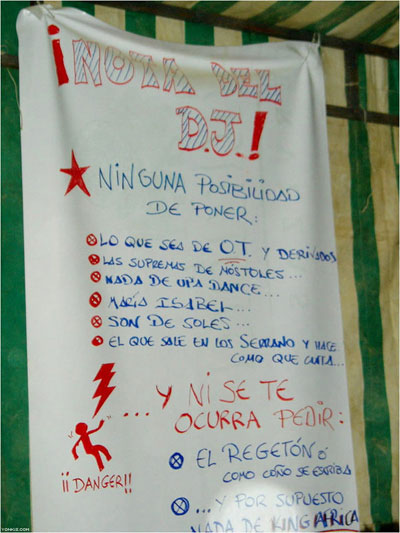 ¡NOTA DEL
D.J.!
NINGUNA POSIBILIDAD
DE PONER:
LO QUE SEA DE O.T. Y DERIVADOS
LAS SUPREMAS DE MÓSTOLES...
NADA DE UPA DANCE...
MARÍA ISABEL...
SON DE SOLES...
EL QUE SALE EN LOS SERRANO Y HACE
COMO QUE CANTA...
... Y NI SE TE
OCURRA PEDIR:
¡¡DANGER!!
EL REGETÓN Ó
COMO COÑO SE ESCRIBA
... Y POR SUPUESTO
NADA DE KING AFRICA
YONKIS.COM